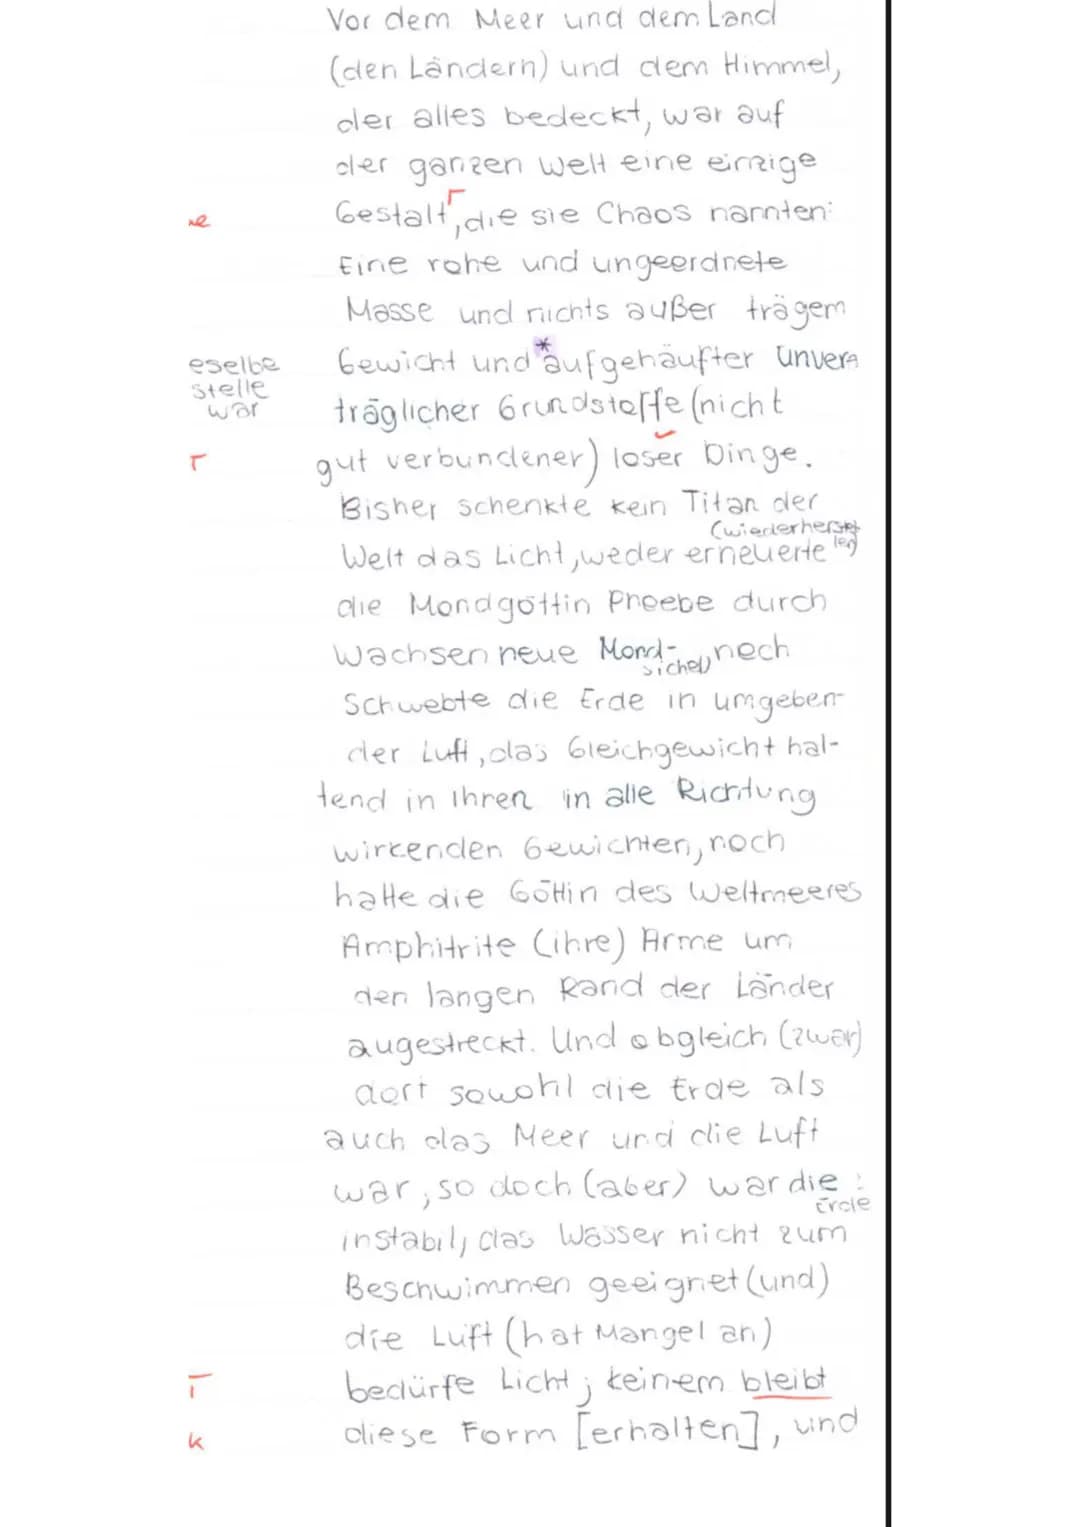 Vor dem Meer und dem Land
(den Ländern) und dem Himmel,
der alles bedeckt, war auf
der ganzen Welt eine einzige
Gestalt, die sie Chaos nannten:
Γ
Eine rohe und ungeordnete
Masse und nichts außer trägem
Gewicht und * aufgehäufter unver
träglicher Grundstoffe (nicht
gut verbundener) loser Dinge.
eselbe
stelle
war
Γ
Bisher schenkte kein Titan der
Welt das Licht, weder erneuerte
(wiederherstel
len)
die Mondgöttin Phoebe durch
Wachsen neue Mond-
sichel, noch
Schwebte die Erde in umgeben-
der Luft, das Gleichgewicht hal-
tend in Ihren in alle Richtung
wirkenden Gewichten, noch
hatte die Göttin des Weltmeeres
Amphitrite (ihre) Arme um
den langen Rand der Länder
augestreckt. Und obgleich (zwar)
dort sowohl die Erde als
auch das Meer und die Luft
war, so doch (aber) war die
Erde
instabil, das Wasser nicht zum
Beschwimmen geeignet (und)
die Luft (hat Mangel an)
bedürfe Licht; keinem bleibt
T
diese Form [erhalten], und
K